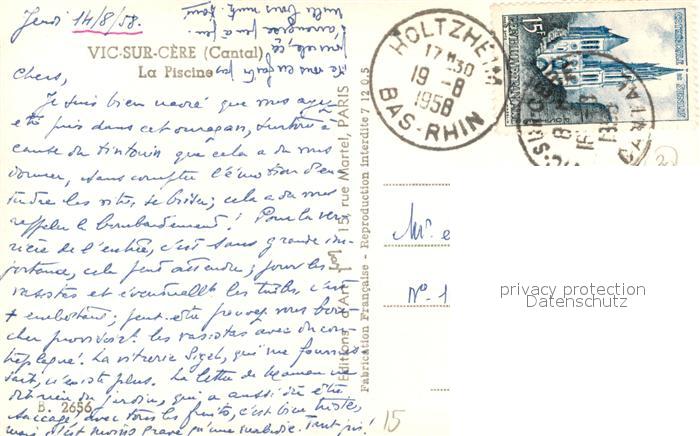 Jeudi 14/8/58.
VIC-SUR-CÈRE (Cantal)
La Piscine
Chers,
Je suis bien navré que vous ayez
été pris dans cet ouragan, surtout à
cause du tintouin que cela a du vous
donner, sans compter l'émotion d'en-
tendre les vitres se briser; cela a du vous
rappeler le bombardement! Pour la ver-
rière de l'entrée, c'est sans grande im-
portance, cela peut attendre; pour les
vasistas et éventuellt les tuiles, c'est
+ embêtant; peut-être pouvez vous bou-
cher provisoirt les vasistas avec du con-
treplaqué. La vitrerie qui me fournis-
sait, n'existe plus. La lettre de Maman ne
dit rien du jardin, qui a aussi dû être
saccagé avec tous les fruits, c'est bien triste,
mais c'est moins grave qu'une maladie. Tant pis!
B. 2656
Editions d'Art 15, rue Martel, PARIS
Fabrication Française - Reproduction Interdite 7 12 0 5
HOLTZHEIM
17 H30
19 - 8
1958
BAS-RHIN
15F
CANTAL
Mr e
N° 1
privacy protection
Datenschutz
15